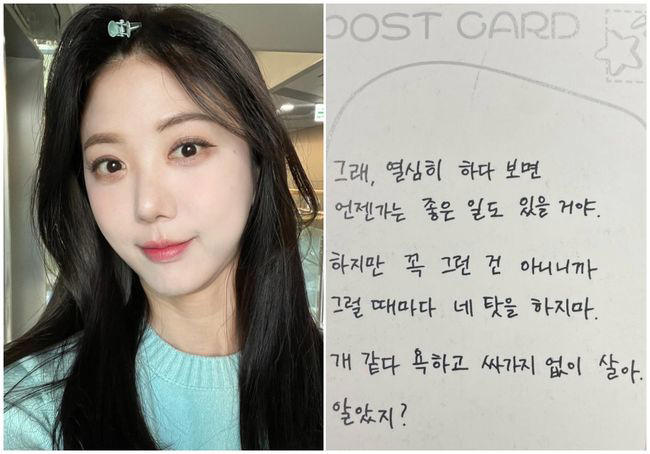 POST CARD
그래, 열심히 하다 보면
언젠가는 좋은 일도 있을 거야.
하지만 꼭 그런 건 아니니까
그럴 때마다 네 탓을 하지마.
개 같다 욕하고 싸가지 없이 살아.
알았지?